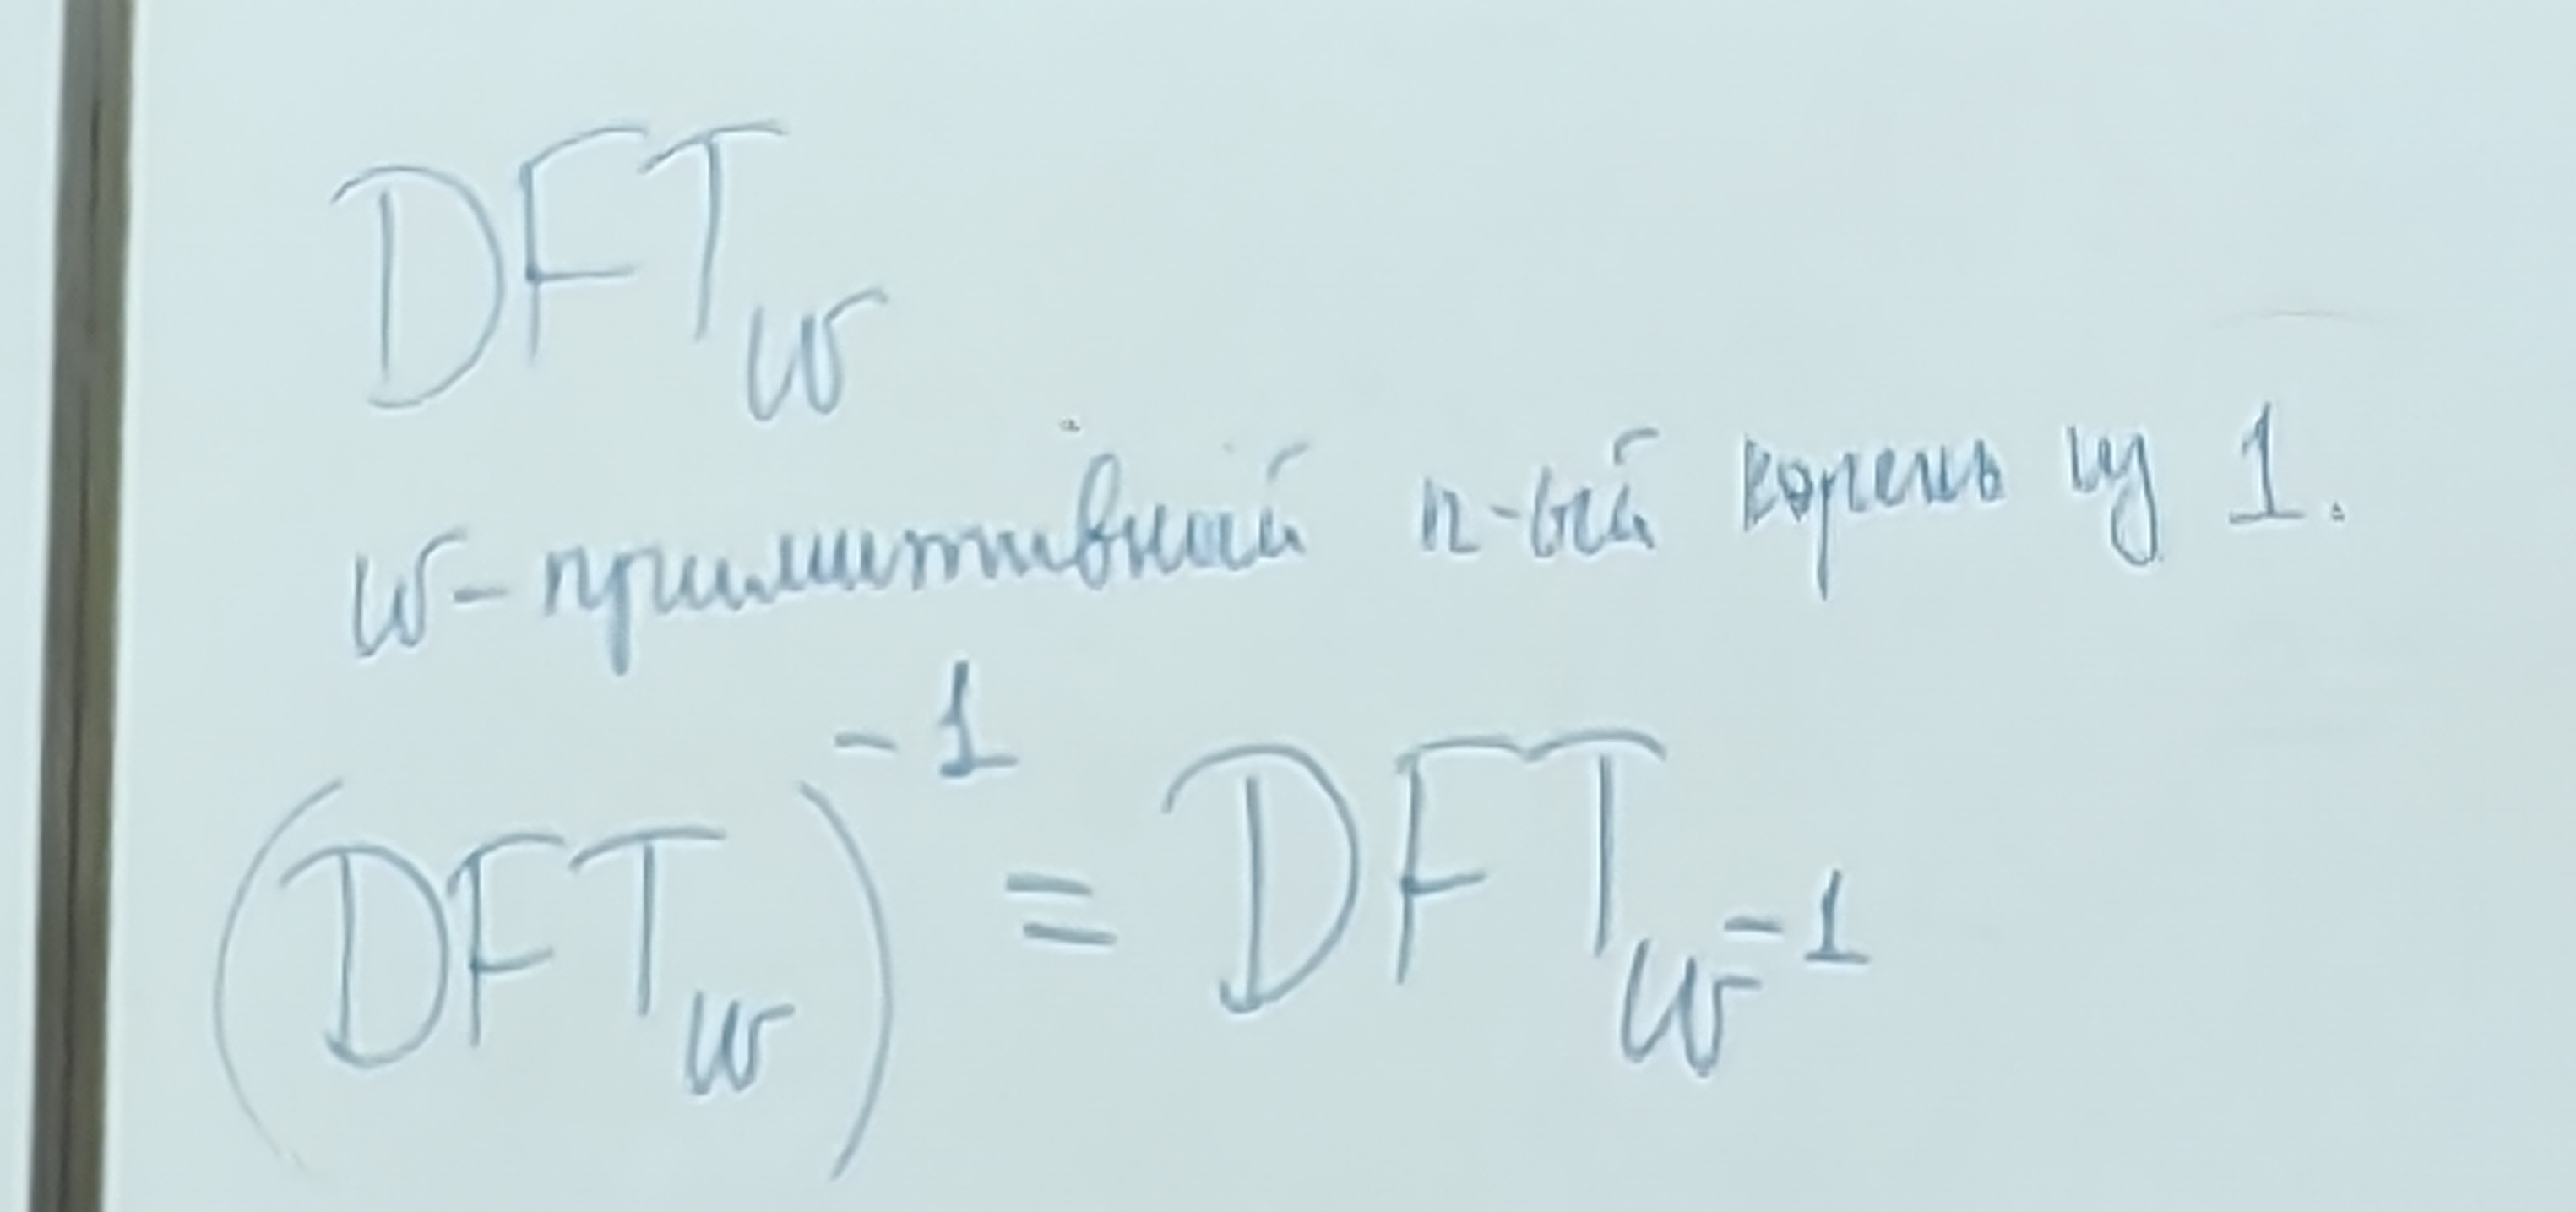 DFT_w
w - примитивный n-ый корень из 1.
(DFT_w)^-1 = DFT_w^-1